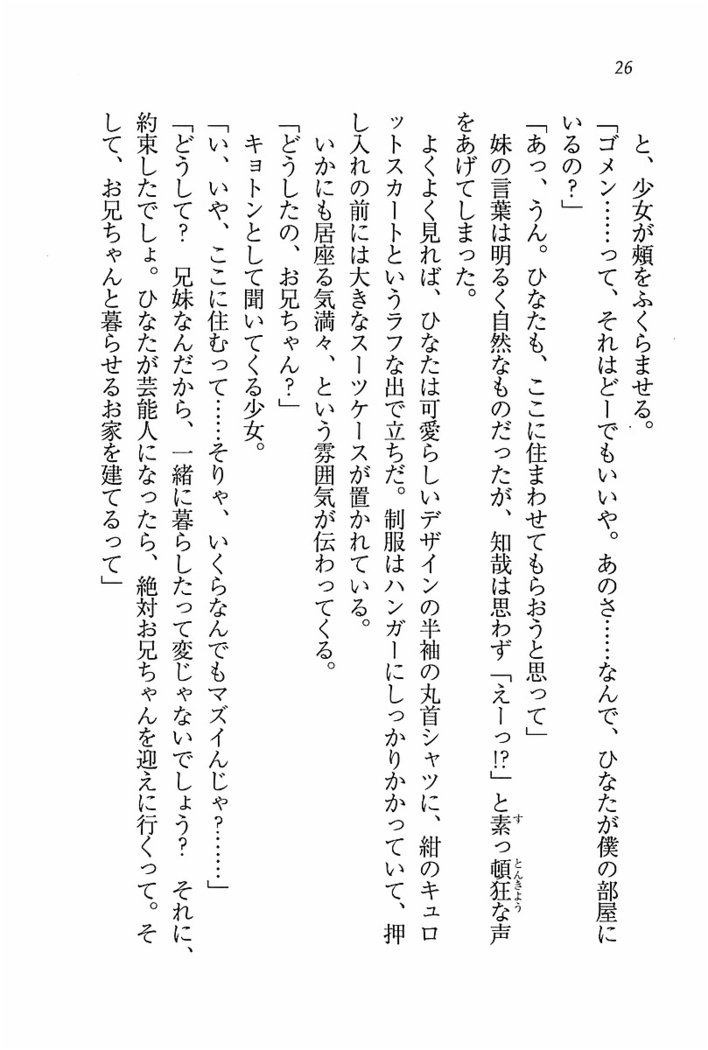 26
と、少女が頬をふくらませる。
「ゴメン……って、それはどーでもいいや。あのさ……なんで、ひなたが僕の部屋に
いるの？」
「あっ、うん。ひなたも、ここに住まわせてもらおうと思って」
妹の言葉は明るく自然なものだったが、知哉は思わず「えーっ!?」と素っ頓狂な声
をあげてしまった。
よくよく見れば、ひなたは可愛らしいデザインの半袖の丸首シャツに、紺のキュロ
ットスカートというラフな出で立ちだ。制服はハンガーにしっかりかかっていて、押
し入れの前には大きなスーツケースが置かれている。
いかにも居座る気満々、という雰囲気が伝わってくる。
「どうしたの、お兄ちゃん？」
キョトンとして聞いてくる少女。
「い、いや、ここに住むって……そりゃ、いくらなんでもマズイんじゃ？………」
「どうして？　兄妹なんだから、一緒に暮らしたって変じゃないでしょう？　それに、
約束したでしょ。ひなたが芸能人になったら、絶対お兄ちゃんを迎えに行くって。そ
して、お兄ちゃんと暮らせるお家を建てるって」